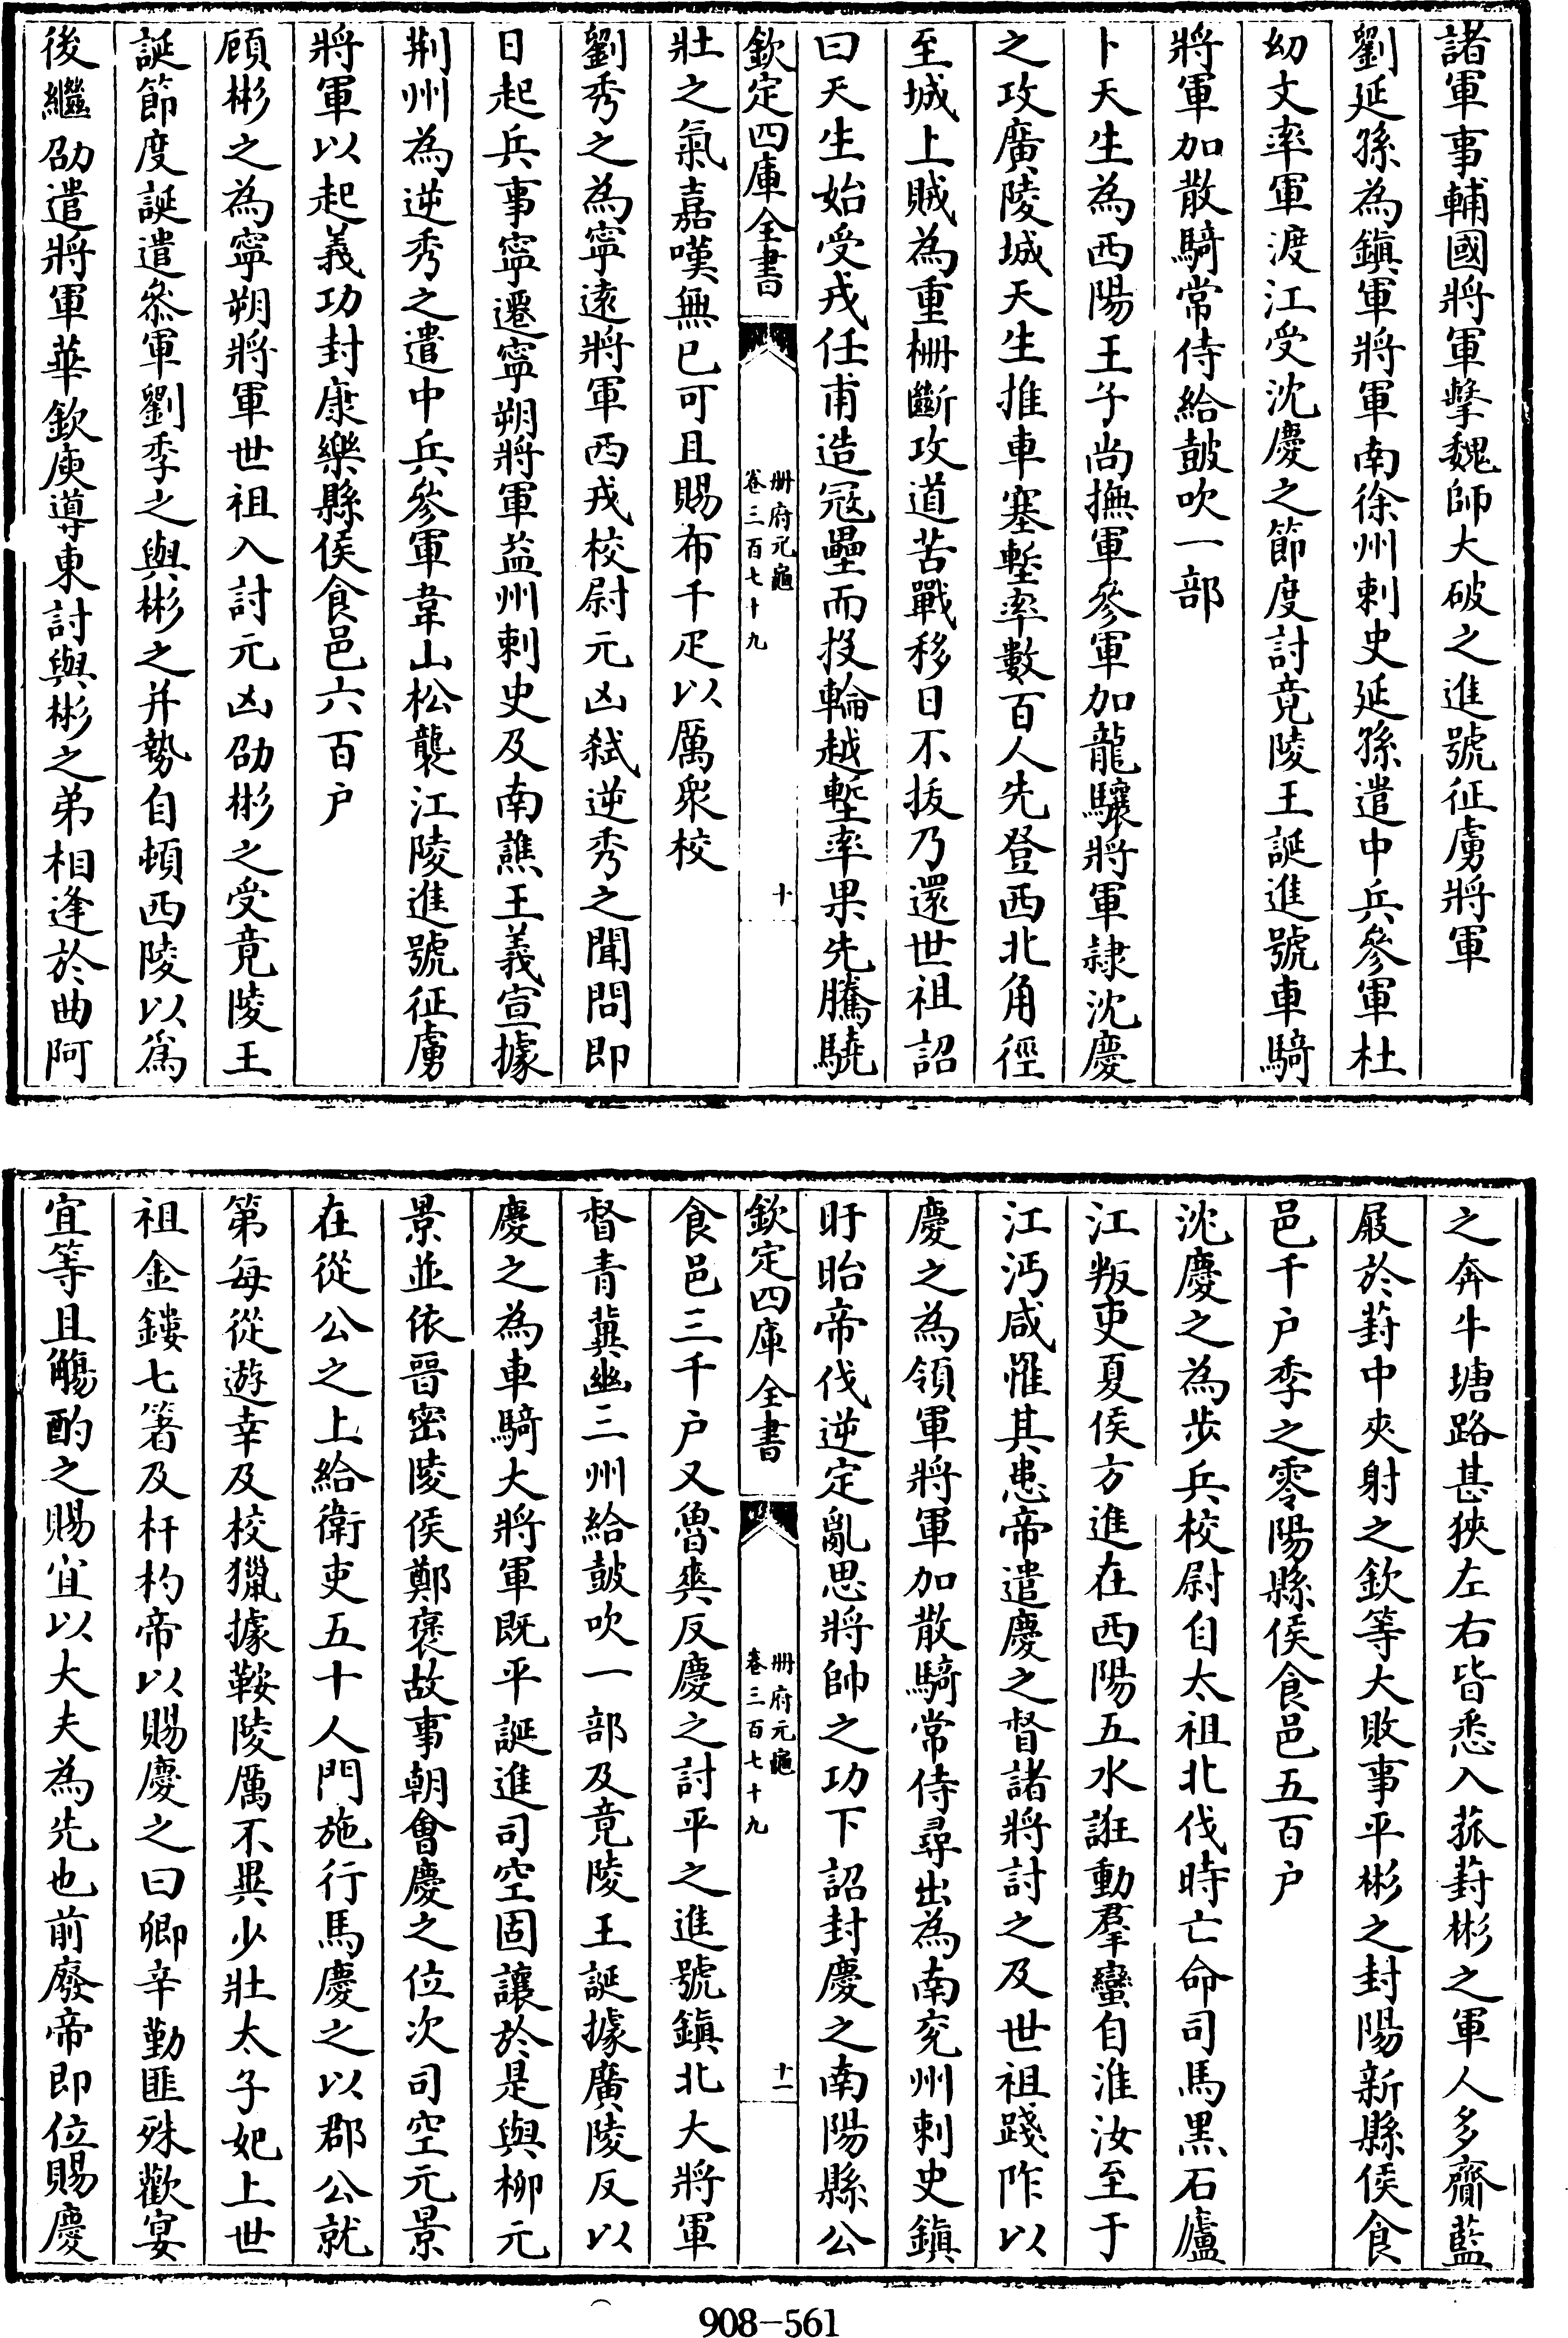 諸軍事輔國將軍擊魏師大破之進號征虜將軍
劉延孫為鎮軍將軍南徐州刺史延孫遣中兵參軍杜
幼文率軍渡江受沈慶之節度討竟陵王誕進號車騎
將軍加散騎常侍給鼓吹一部
卜天生為西陽王子尚撫軍參軍加龍驤將軍隸沈慶
之攻廣陵城天生推車塞塹率數百人先登西北角徑
至城上賊為重柵斷攻道苦戰移日不拔乃還世祖詔
曰天生始受戎任甫造冦壘而投輪越塹率果先騰驍
欽定四庫全書
冊府元龜
卷三百七十九
十
壯之氣嘉嘆無已可且賜布千疋以厲衆校
劉秀之為寧逺將軍西戎校尉元凶弑逆秀之聞問即
日起兵事寧遷寧朔將軍益州刺史及南譙王義宣據
荆州為逆秀之遣中兵參軍韋山松襲江陵進號征虜
將軍以起義功封康樂縣侯食邑六百户
顧彬之為寧朔將軍世祖入討元凶劭彬之受竟陵王
誕節度誕遣叅軍劉季之與彬之并勢自頓西陵以爲
後繼劭遣將軍華欽庾導東討與彬之弟相逢於曲阿
之奔牛塘路甚狹左右皆悉入菰葑彬之軍人多齎藍
屐於葑中夾射之欽等大敗事平彬之封陽新縣侯食
邑千户季之零陽縣侯食邑五百户
沈慶之為步兵校尉自太祖北伐時亡命司馬黑石廬
江叛吏夏侯方進在西陽五水誑動羣蠻自淮汝至于
江沔咸罹其患帝遣慶之督諸將討之及世祖踐阼以
慶之為領軍將軍加散騎常侍尋出為南兖州刺史鎮
盱眙帝伐逆定亂思將帥之功下詔封慶之南陽縣公
欽定四庫全書
冊府元龜
卷三百七十九
十一
食邑三千户又魯爽反慶之討平之進號鎮北大將軍
督青冀幽三州給鼓吹一部及竟陵王誕據廣陵反以
慶之為車騎大將軍既平誕進司空固讓於是與柳元
景並依晉密陵侯鄭褒故事朝會慶之位次司空元景
在從公之上給衛吏五十人門施行馬慶之以郡公就
第每從遊幸及校獵據鞍陵厲不異少壯太子妃上世
祖金鏤七箸及杆杓帝以賜慶之曰卿辛勤匪殊歡宴
宜等且觴酌之賜宜以大夫為先也前廢帝即位賜慶
908—561